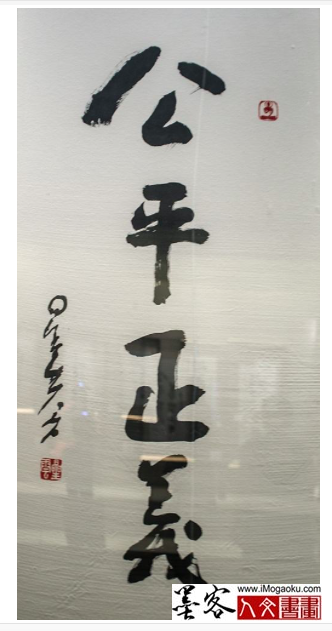 公平正義
墨客
www.iMogaoku.com
人文書畫